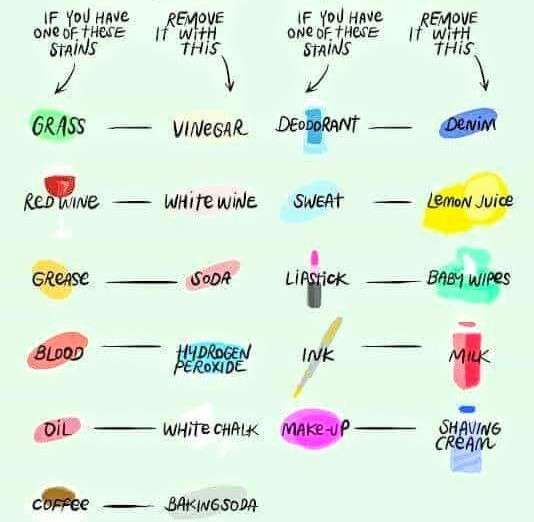 IF YOU HAVE
ONE OF THESE
STAINS
REMOVE
IT WITH
THIS
IF YOU HAVE
ONE OF THESE
STAINS
REMOVE
IT WITH
THIS
GRASS — VINEGAR
DEODORANT — DENIM
RED WINE — WHITE WINE
SWEAT — LEMON JUICE
GREASE — SODA
LIPSTICK — BABY WIPES
BLOOD — HYDROGEN
PEROXIDE
INK — MILK
OIL — WHITE CHALK
MAKE-UP — SHAVING
CREAM
COFFEE — BAKING SODA